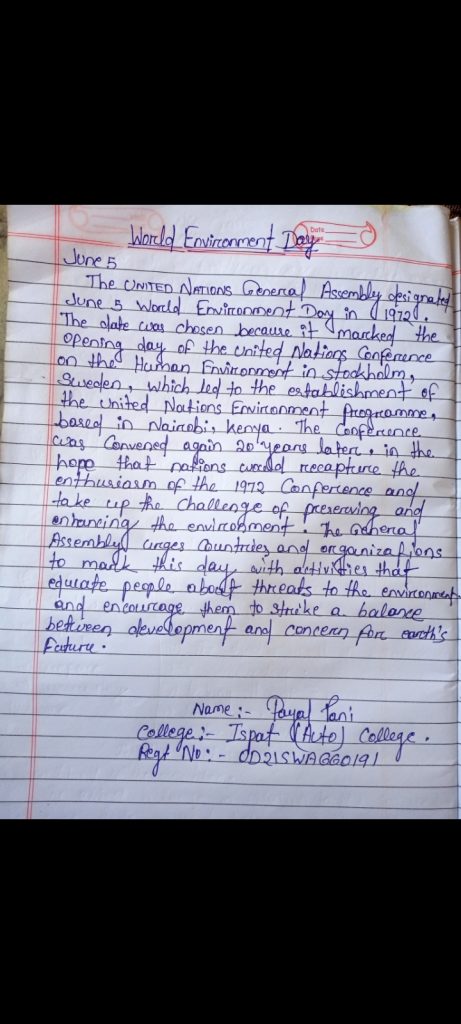 World Environment Day
Date
June 5
The UNITED NATIONS General Assembly designated
June 5 World Environment Day in 1972.
The date was chosen because it marked the
opening day of the united Nations Conference
on the Human Environment in stockholm,
Sweden, which led to the establishment of
the united Nations Environment Programme,
based in Nairobi, Kenya. The Conference
was Convened again 20 years later, in the
hope that nations would recapture the
enthusiasm of the 1972 Conference and
take up the challenge of preserving and
enhancing the environment. The General
Assembly urges Countries and organizations
to mark this day with activities that
equcate people about threats to the environment
and encourage them to strike a balance
between development and concern for earth's
Future.
Name :- Payal Pani
College :- Ispat (Auto) College.
Regt No :- OD21SWAGGO191